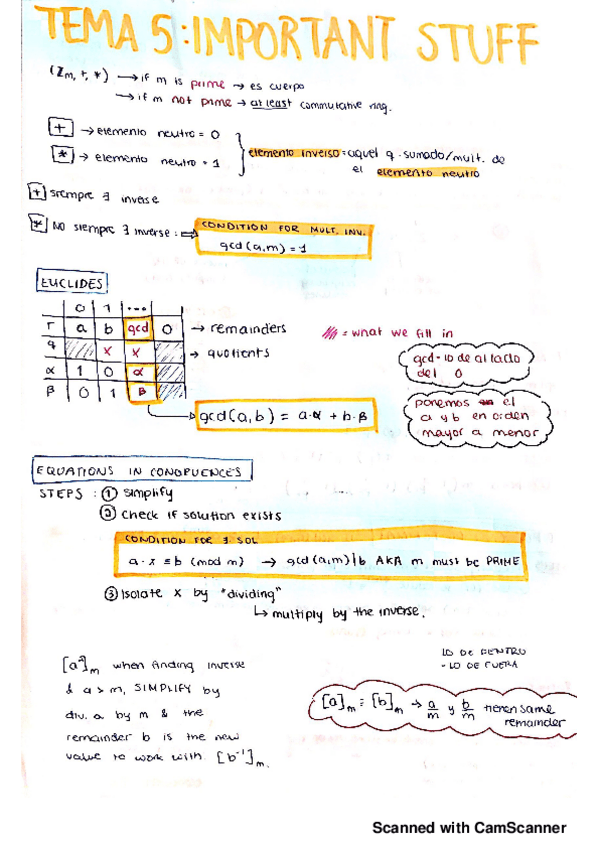 TEMA 5: IMPORTANT STUFF
(Zm, +, *) → if m is prime → es cuerpo
→ if m not prime → at least commutative ring.
+ → elemento neutro = 0
* → elemento neutro = 1
elemento inverso = aquel q. sumado/mult. de
el elemento neutro
+ siempre ∃ inverse
* NO siempre ∃ inverse: ⇒
CONDITION FOR MULT. INV.
gcd(a,m) = 1
EUCLIDES
0 1 ...
r a b gcd 0 → remainders
q x x → quotients
α 1 0 α
β 0 1 β
= what we fill in
gcd = lo de al lado
del 0
ponemos el
a y b en orden
mayor a menor
gcd(a,b) = a·α + b·β
EQUATIONS IN CONGRUENCES
STEPS: ① simplify
② check if solution exists
CONDITION FOR ∃ SOL
a·x ≡ b (mod m) → gcd(a,m)|b AKA m must be PRIME
③ Isolate x by "dividing"
↳ multiply by the inverse.
when finding inverse
& a > m, SIMPLIFY by
div. a by m & the
remainder b is the new
value to work with. [b⁻¹]m.
LO DE DENTRO
- LO DE FUERA
[a]m = [b]m → a/m y b/m tienen same
remainder
Scanned with CamScanner